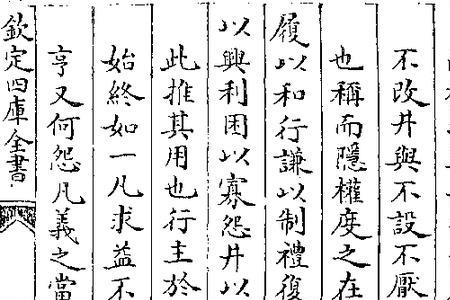 不改井與不設不厭
也稱而隱權度之在
履以和行謙以制禮復
以興利困以寡怨井以
此推其用也行主於
始終如一凡求益不
亨又何怨凡義之當
欽定四庫全書